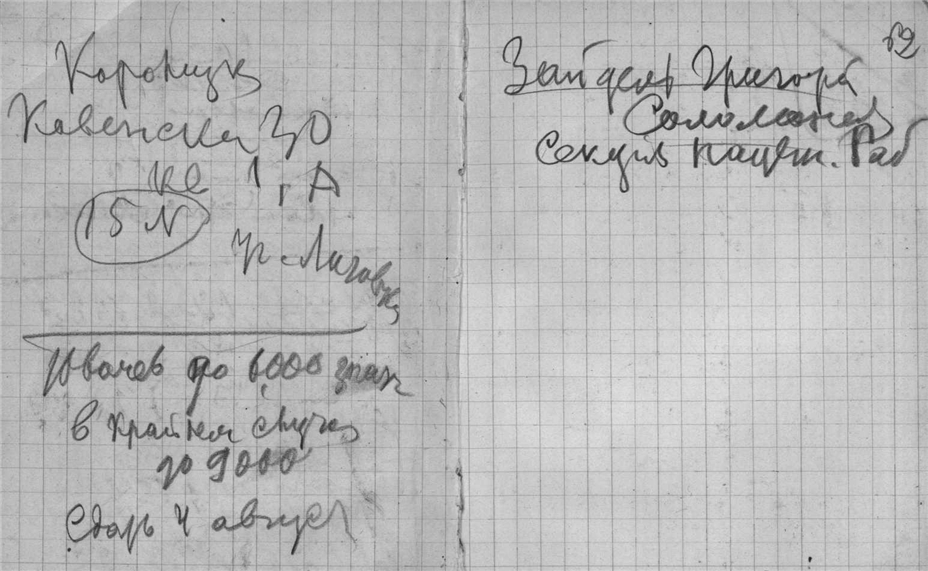 Ковенская 30
кв 1, А
15 N
уг. Лиговки
Ювачев до 6000 знак
в крайнем случае
до 9000
Сдать 4 август
Зайдель Григорий
Соломонов
Секция научн. Раб